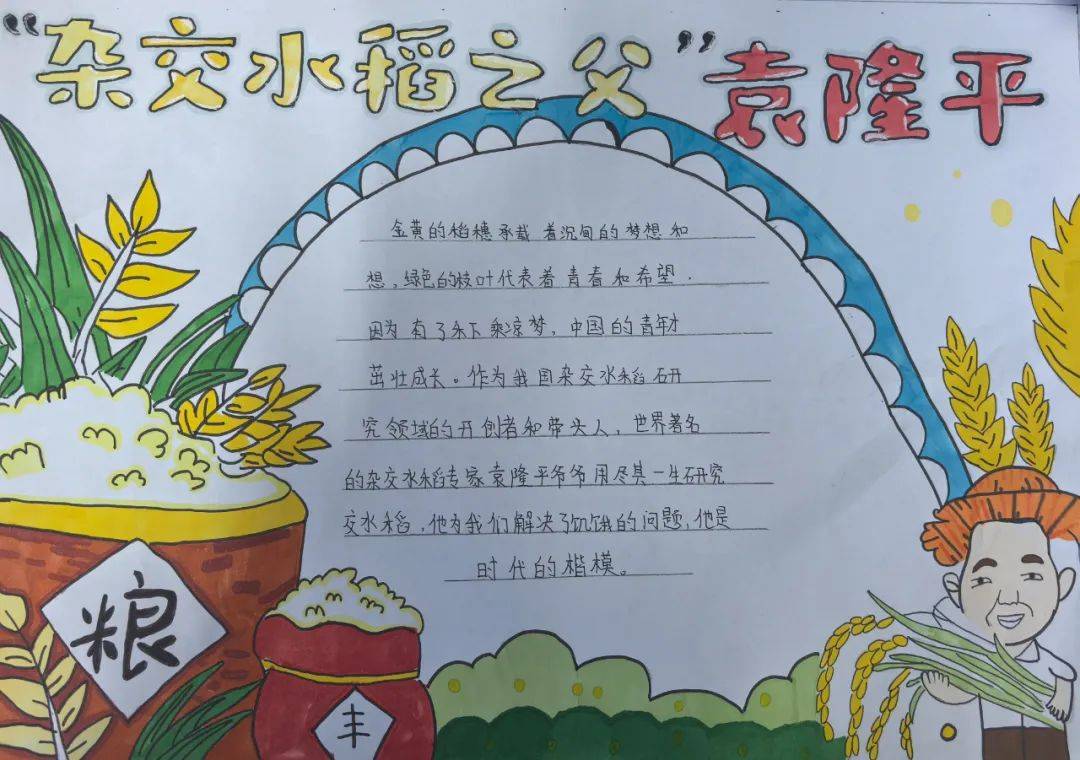 “杂交水稻之父”袁隆平
金黄的稻穗承载着沉甸的梦想和
想，绿色的枝叶代表着青春和希望.
因为有了禾下乘凉梦，中国的青年才
茁壮成长。作为我国杂交水稻研
究领域的开创者和带头人，世界著名
的杂交水稻专家袁隆平爷爷用尽其一生研究
交水稻，他为我们解决了饥饿的问题，他是
时代的楷模。
粮
丰